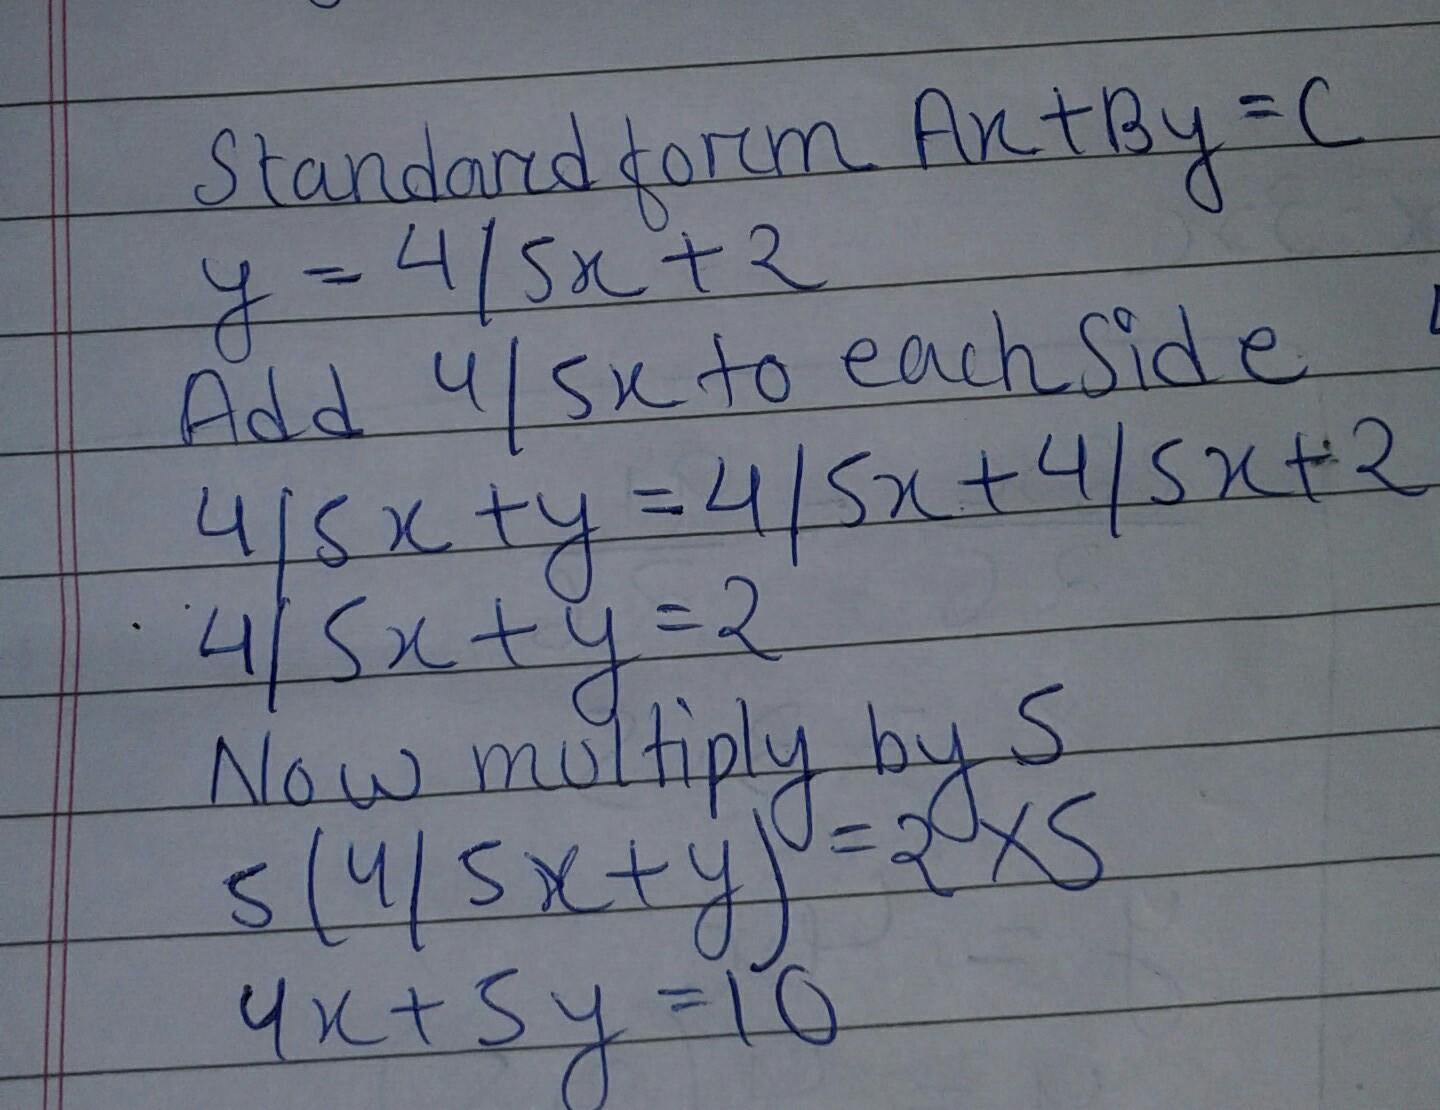 Standard form Ax+By=C
y = 4/5x+2
Add 4/5x to each side
4/5x+y=4/5x+4/5x+2
4/5x+y=2
Now multiply by 5
5(4/5x+y)=2×5
4x+5y=10